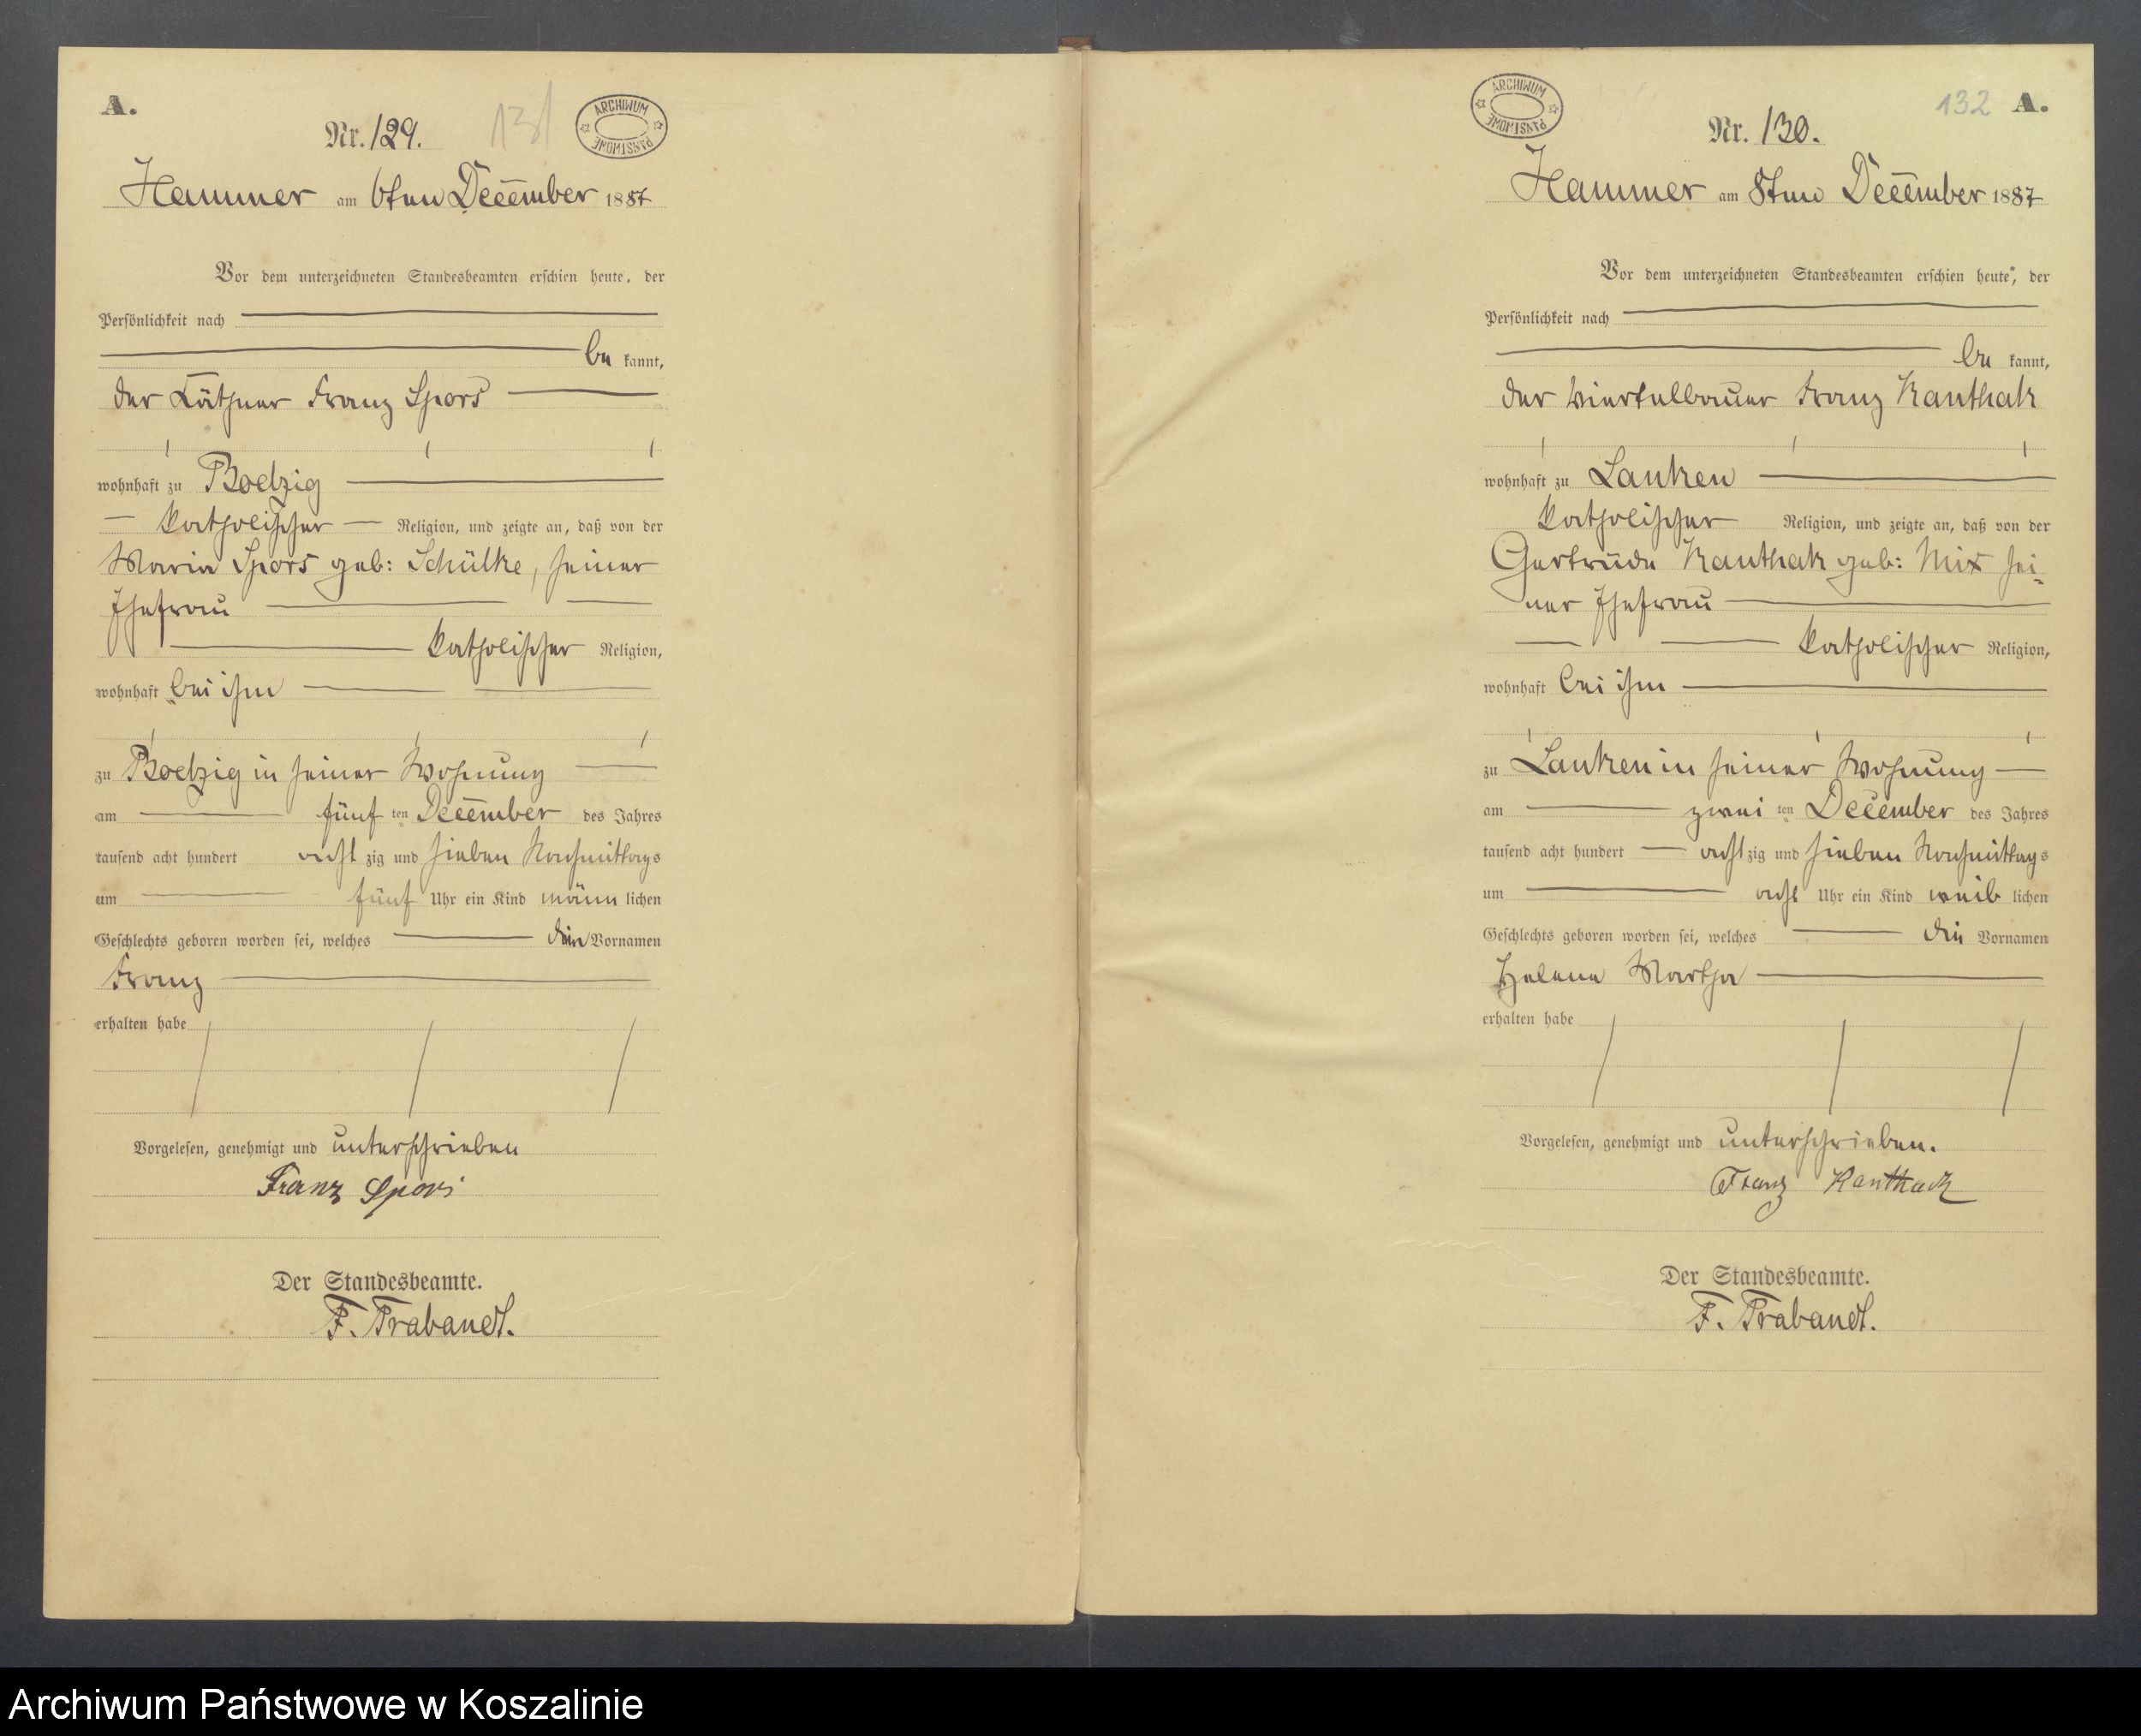 A.
Nr. 129.
131
ARCHIWUM PAŃSTWOWE
Hammer am 6ten December 1887
Vor dem unterzeichneten Standesbeamten erschien heute, der
Persönlichkeit nach
be kannt,
der Käthner Franz Spors
wohnhaft zu Boelzig
katholischer Religion, und zeigte an, daß von der
Maria Spors geb: Schülke, seiner
Ehefrau
katholischer Religion,
wohnhaft bei ihm
zu Boelzig in seiner Wohnung
am fünf ten December des Jahres
tausend acht hundert acht zig und sieben Nachmittags
um fünf Uhr ein Kind männ lichen
Geschlechts geboren worden sei, welches den Vornamen
Franz
erhalten habe
Vorgelesen, genehmigt und unterschrieben
Franz Spors
Der Standesbeamte.
F. Trabandt.
ARCHIWUM PAŃSTWOWE
132
A.
Nr. 130.
Hammer am 8ten December 1887
Vor dem unterzeichneten Standesbeamten erschien heute, der
Persönlichkeit nach
be kannt,
der Viertelbauer Franz Kanthak
wohnhaft zu Lanken
katholischer Religion, und zeigte an, daß von der
Gertrude Kanthak geb: Mix sei-
ner Ehefrau
katholischer Religion,
wohnhaft bei ihm
zu Lanken in seiner Wohnung
am zwei ten December des Jahres
tausend acht hundert acht zig und sieben Nachmittags
um acht Uhr ein Kind weib lichen
Geschlechts geboren worden sei, welches die Vornamen
Helene Martha
erhalten habe
Vorgelesen, genehmigt und unterschrieben.
Franz Kanthack
Der Standesbeamte.
F. Trabandt.
Archiwum Państwowe w Koszalinie